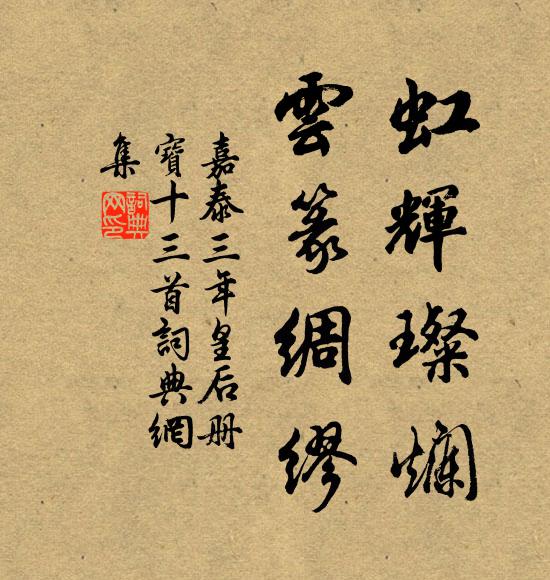 虹輝璨爛
雲篆綢繆
嘉泰三年皇后册
寶十三首詞典網
集
詞典網印